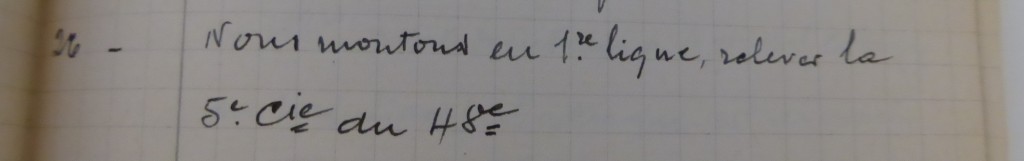 26 - Nous montons en 1re ligne, relever la
5e Cie du 48e